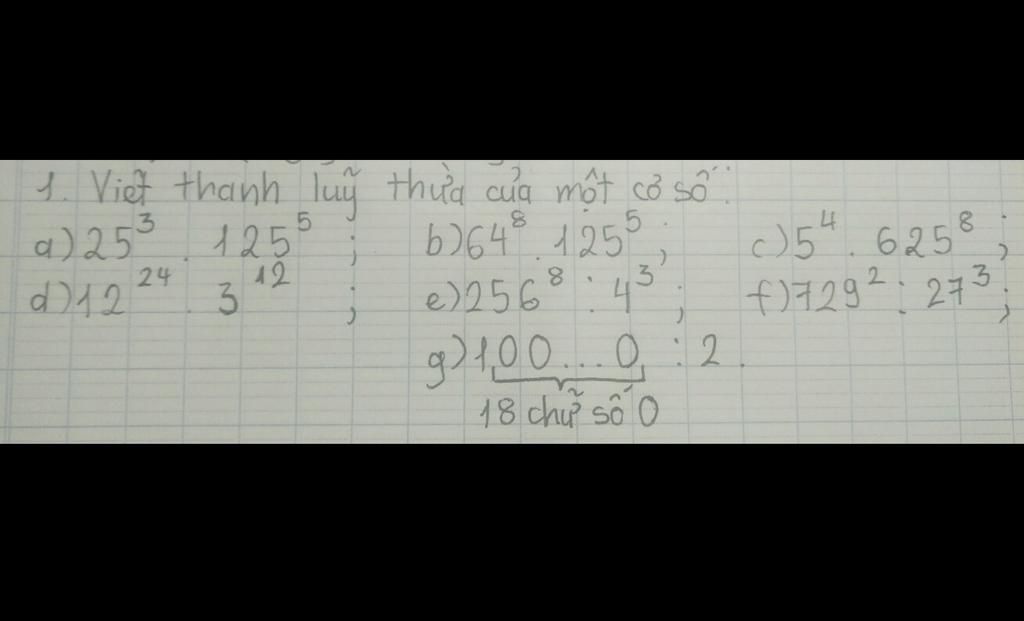 1. Viết thanh luỹ thừa của một cơ số:
a) 25³ . 125⁵ ; b) 64⁸ . 125⁵ ; c) 5⁴ . 625⁸ ;
d) 12²⁴ . 3¹² ; e) 256⁸ : 4³ ; f) 729² : 27³ ;
g) 100...0 : 2 .
18 chữ số 0